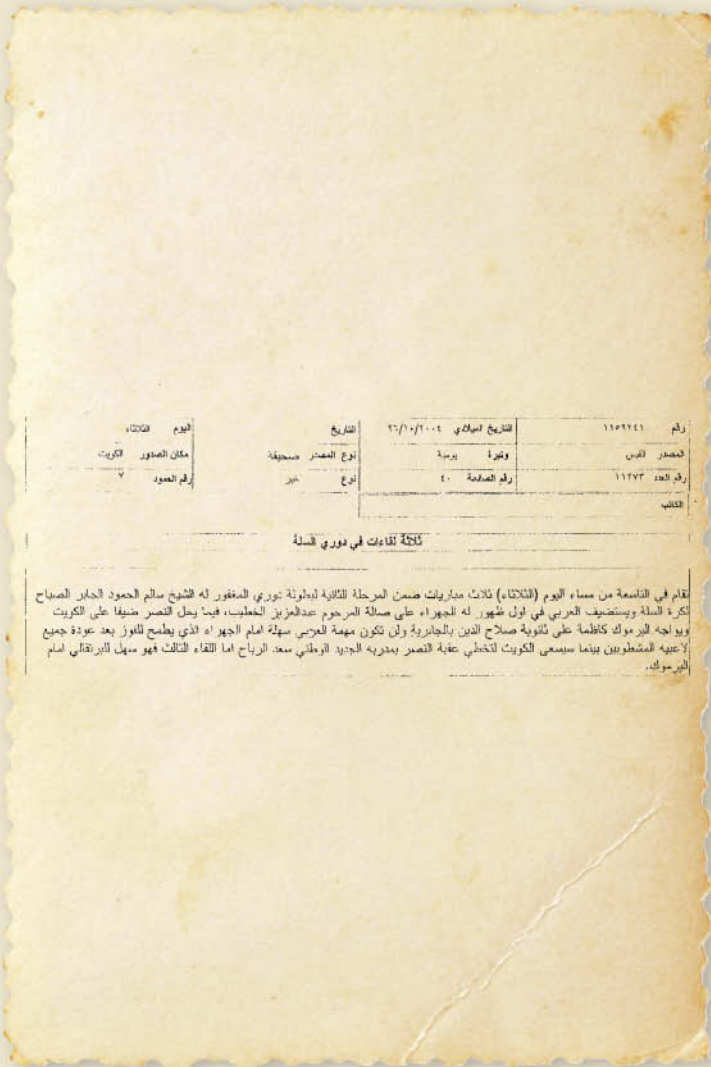 رقم ١١٥٩٢٤١ التاريخ الميلادي ٢٦/١٠/٢٠٠٤ التاريخ اليوم الثلاثاء
المصدر القبس وتيرة يومية نوع المصدر صحيفة مكان الصدور الكويت
رقم العدد ١١٢٧٣ رقم الصفحة ٤٠ نوع خبر رقم العمود ٧
الكاتب
ثلاثة لقاءات في دوري السلة
تقام في التاسعة من مساء اليوم (الثلاثاء) ثلاث مباريات ضمن المرحلة الثانية لبطولة دوري المغفور له الشيخ سالم الحمود الجابر الصباح
لكرة السلة ويستضيف العربي في اول ظهور له الجهراء على صالة المرحوم عبدالعزيز الخطيب، فيما يحل النصر ضيفا على الكويت
ويواجه اليرموك كاظمة على ثانوية صلاح الدين بالجابرية ولن تكون مهمة العربي سهلة امام الجهراء الذي يطمح للفوز بعد عودة جميع
لاعبيه المشطوبين بينما سيسعى الكويت لتخطي عقبة النصر بمدربه الجديد الوطني سعد الرباح اما اللقاء الثالث فهو سهل للبرتقالي امام
اليرموك.